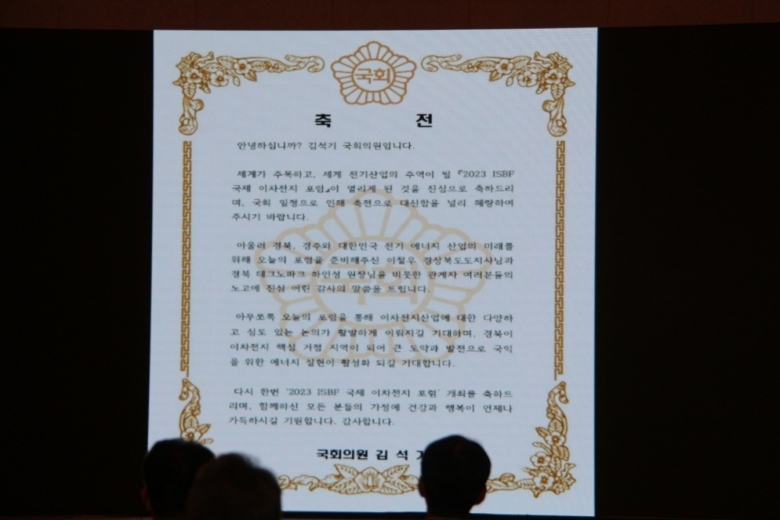 국회
축 전
안녕하십니까? 김석기 국회의원입니다.
세계가 주목하고, 세계 전기산업의 주역이 될 『2023 ISBF
국제 이차전지 포럼』이 열리게 된 것을 진심으로 축하드리
며, 국회 일정으로 인해 축전으로 대신함을 널리 혜량하여
주시기 바랍니다.
아울러 경북, 경주와 대한민국 전기 에너지 산업의 미래를
위해 오늘의 포럼을 준비해주신 이철우 경상북도도지사님과
경북 테크노파크 하인성 원장님을 비롯한 관계자 여러분들의
노고에 진심 어린 감사의 말씀을 드립니다.
아무쪼록 오늘의 포럼을 통해 이차전지산업에 대한 다양하
고 심도 있는 논의가 활발하게 이뤄지길 기대하며, 경북이
이차전지 핵심 거점 지역이 되어 큰 도약과 발전으로 국익
을 위한 에너지 실현이 활성화 되길 기대합니다.
다시 한번 '2023 ISBF 국제 이차전지 포럼' 개최를 축하드
리며, 함께하신 모든 분들의 가정에 건강과 행복이 언제나
가득하시길 기원합니다. 감사합니다.
국회의원 김 석 기